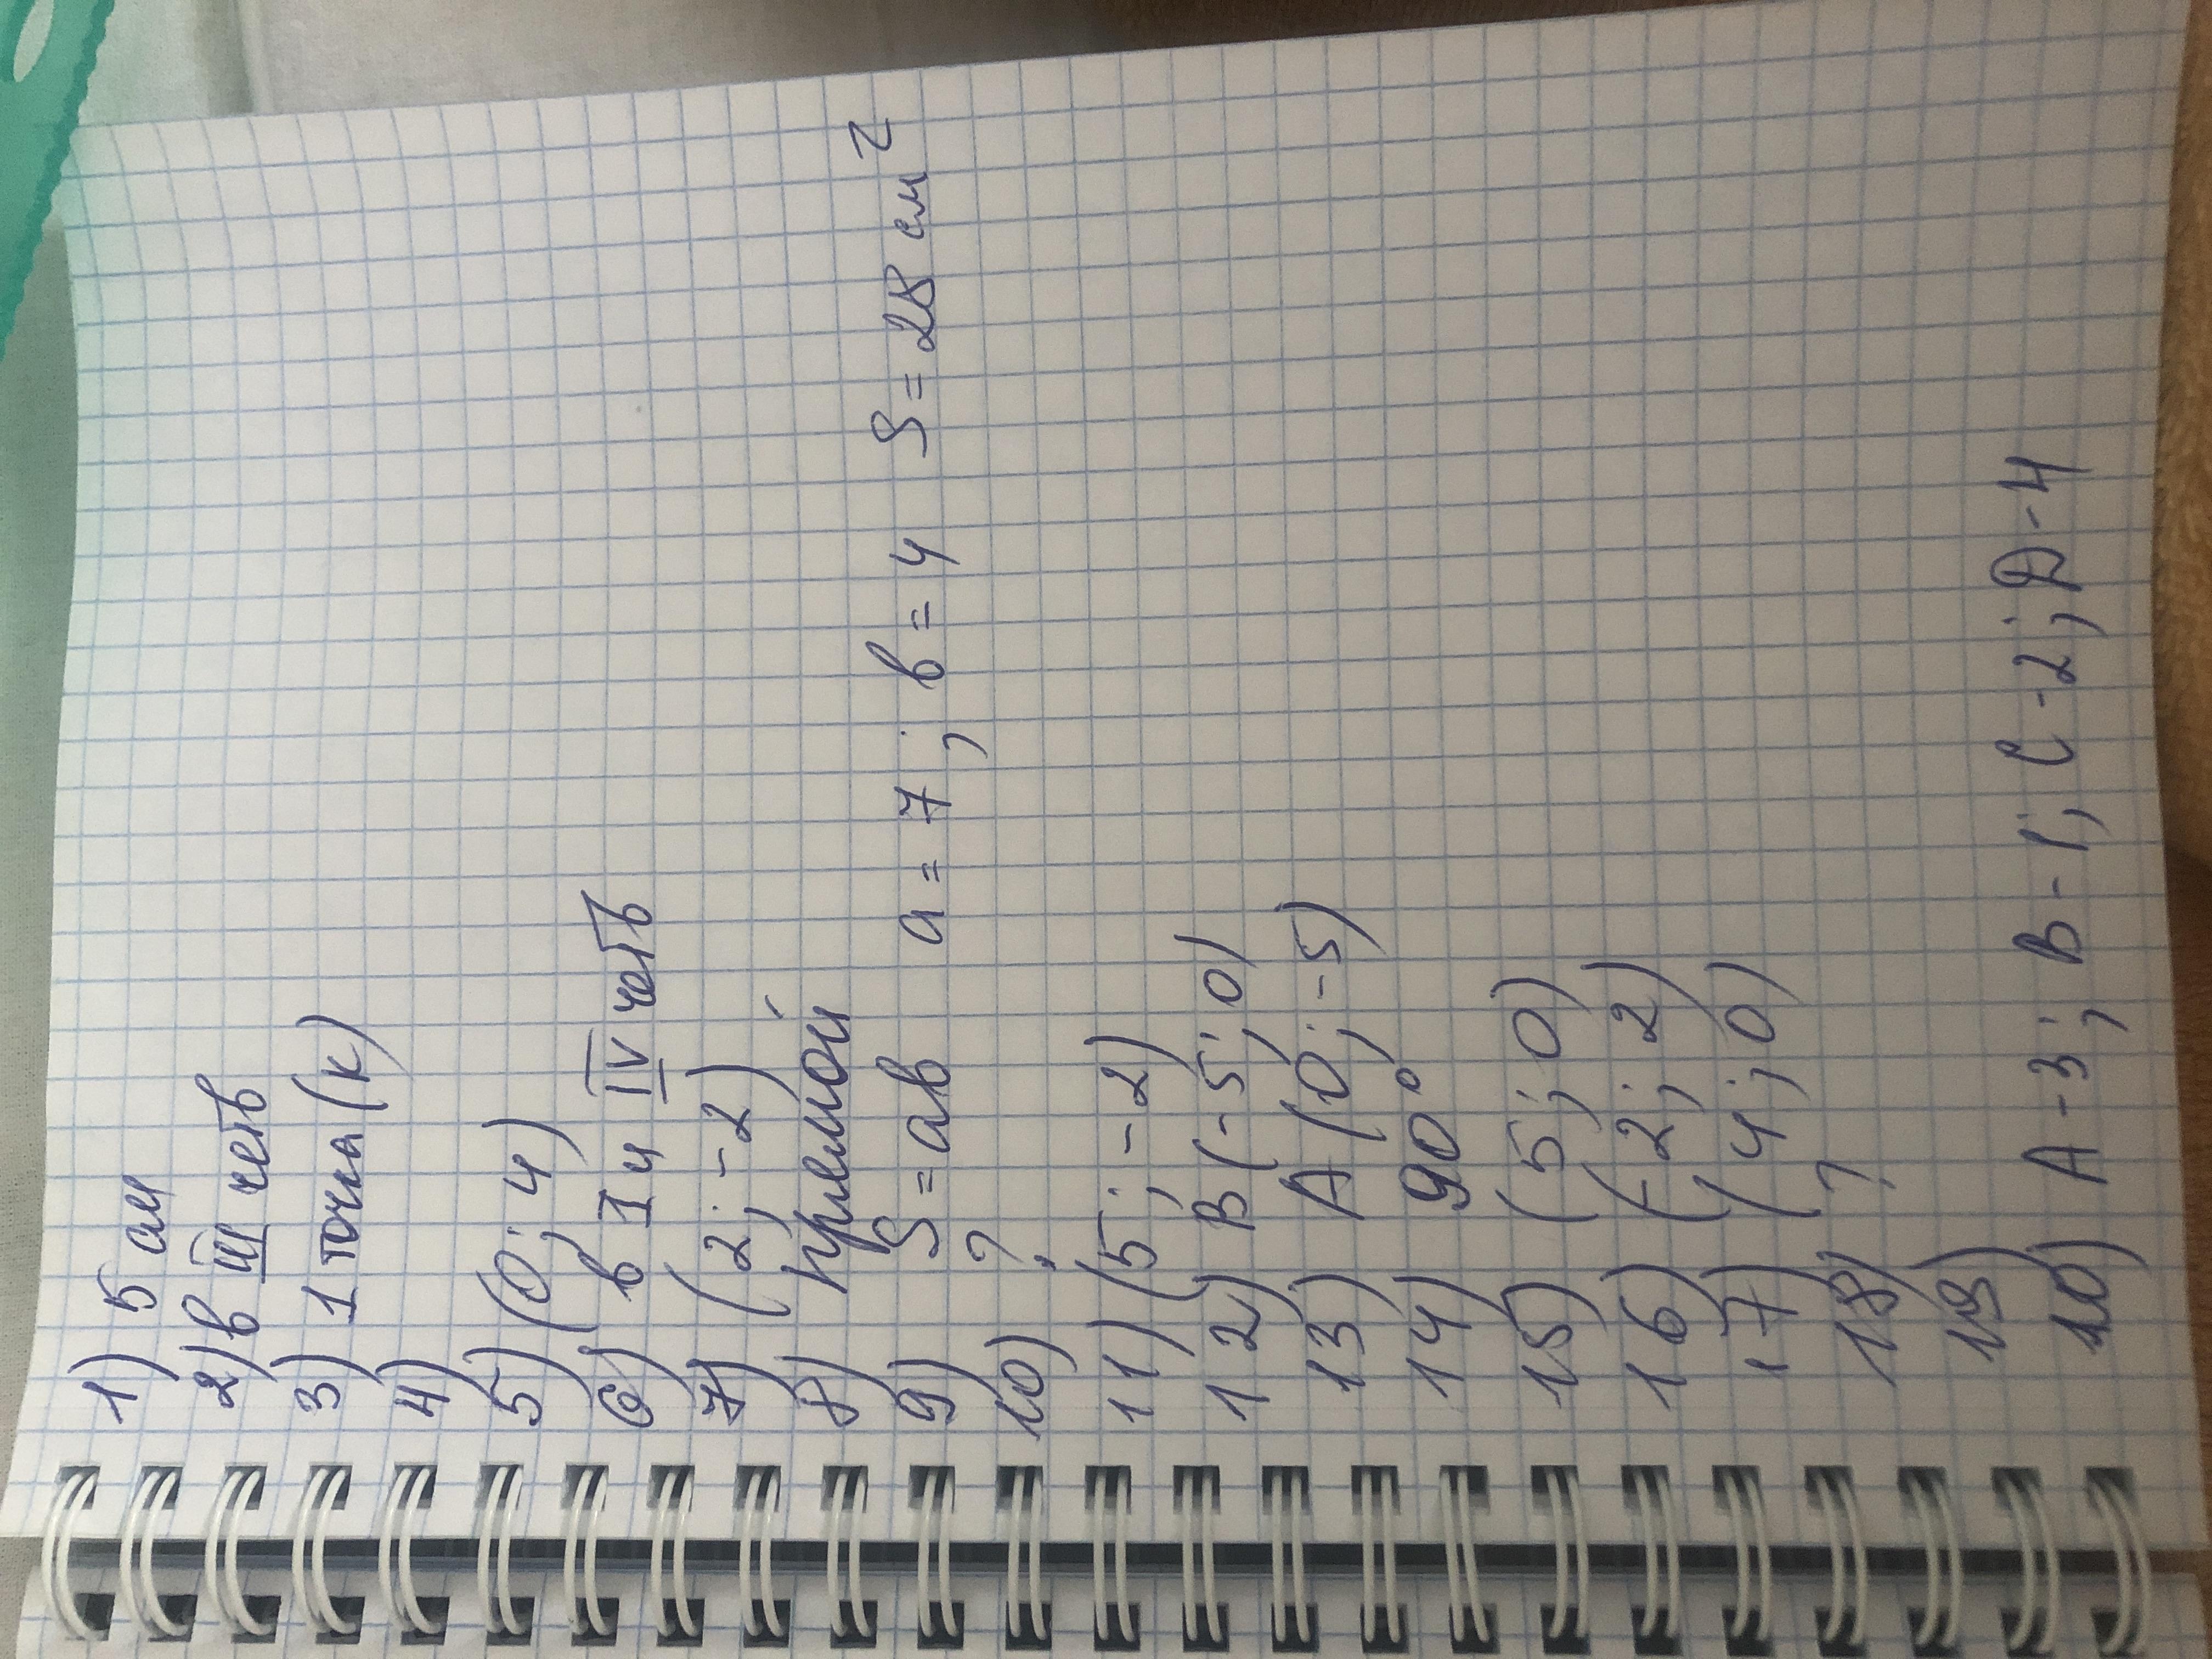 1) 5 см
2) в III четв
3) 1 точка (к)
4)
5) (0; 4)
6) в I и IV четв
7) (2; -2)
8) прямой
9) S = ав а = 7; в = 4 S = 28 см 2
10) ?
11) (5; -2)
12) В (-5; 0)
13) А (0; -5)
14) 90°
15) (5; 0)
16) (-2; 2)
17) (4; 0)
18) ?
19)
20) А-3; В-1; С-2; Д-4